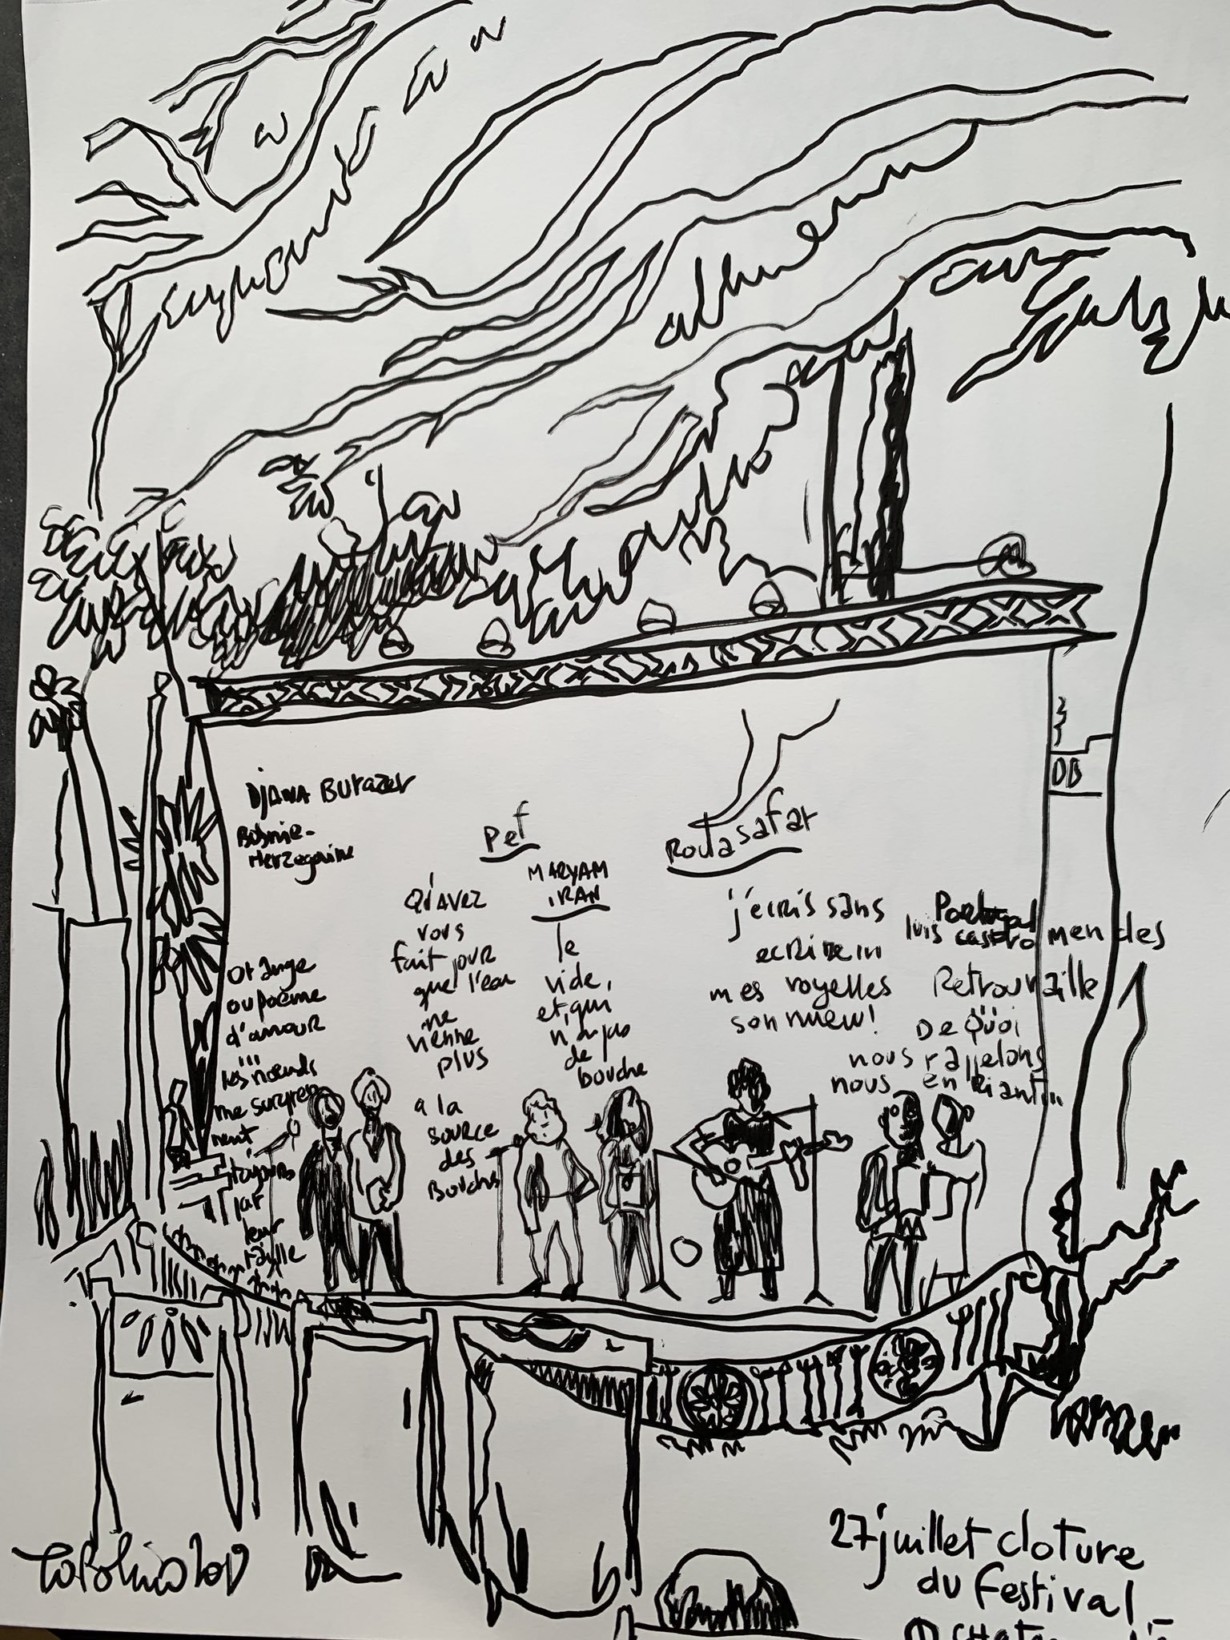 Djana Burazer
Bosnie-
Herzegovine
orange
ou poème
d'amour
...
les nœuds
me surpren
nent
toujours
par
leur
taille
Pef
Qu'avez
vous
fait pour
que l'eau
ne
vienne
plus
a la
source
des
MARYAM
IRAN
le
vide,
et, qui
n'a pas
de
bouche
Routasafar
j'ecris sans
ecrire
mes voyelles
Portugal
luis castro mendes
Retrouvaille
De Quoi
nous rappelons
nous en Riant...
DB
27 juillet cloture
du festival